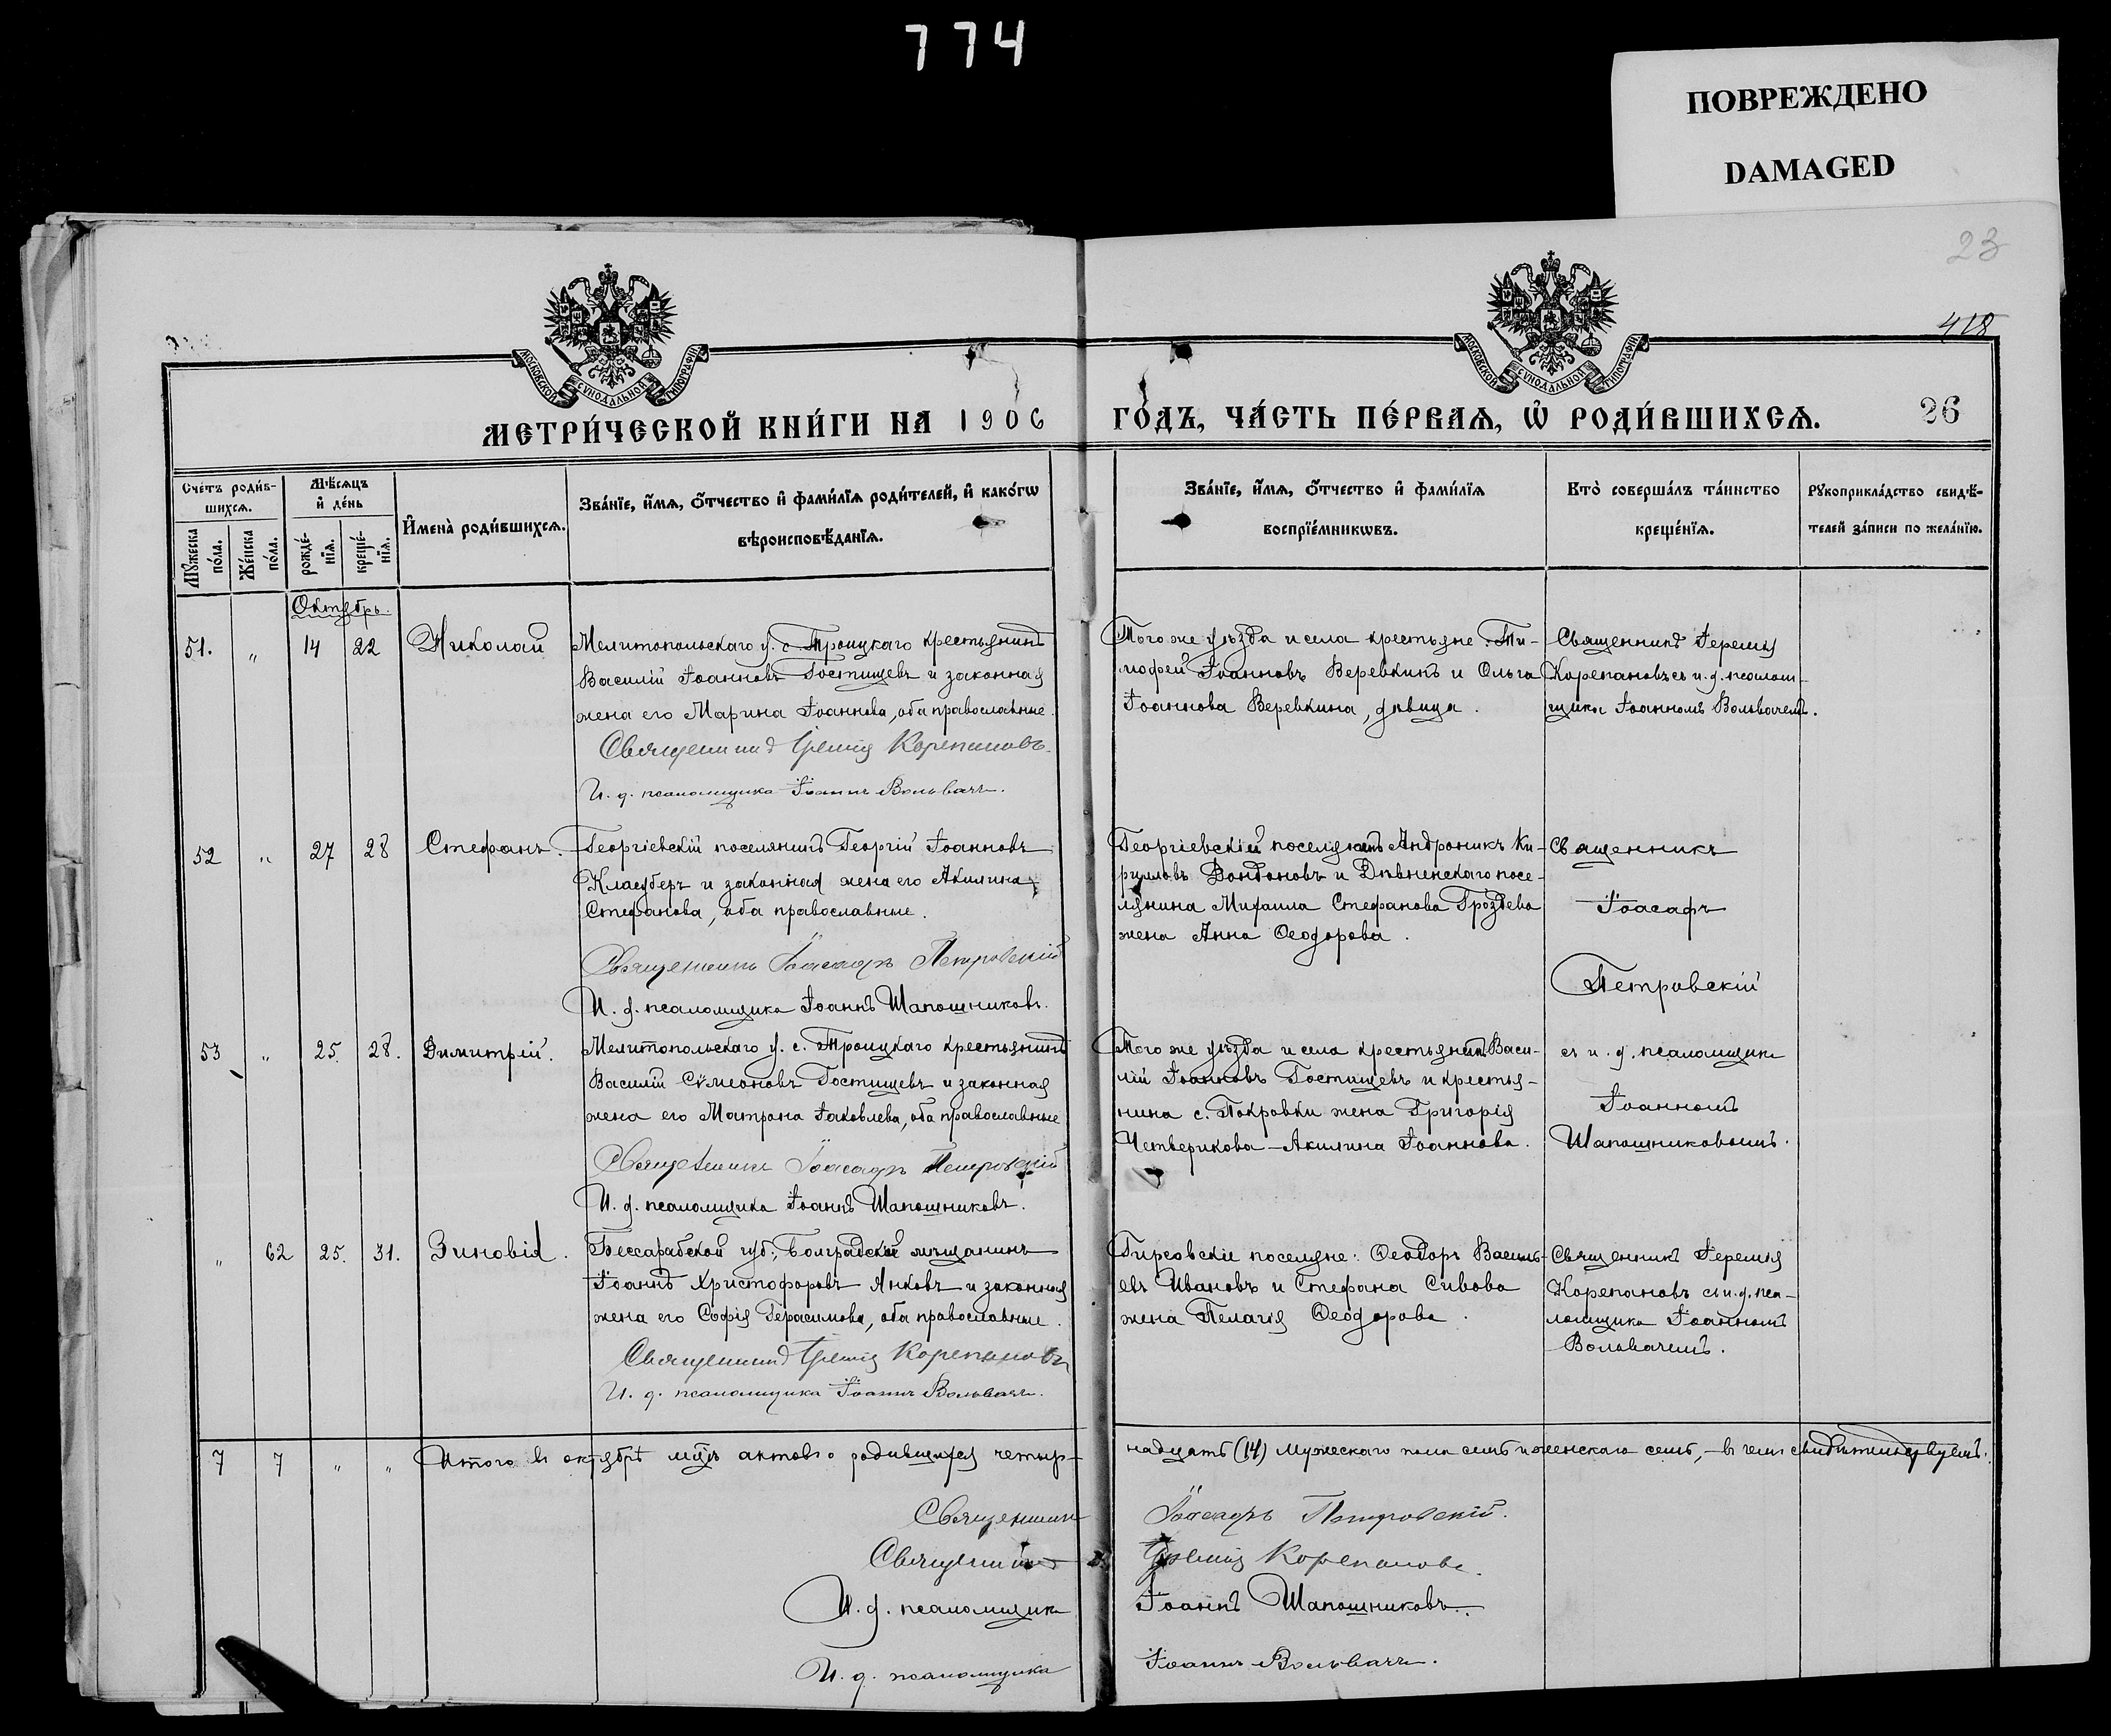 774
ПОВРЕЖДЕНО
DAMAGED
23
418
МОСКОВСКОЙ СѴНОДАЛЬНОЙ ТИПОГРАФІИ
МОСКОВСКОЙ СѴНОДАЛЬНОЙ ТИПОГРАФІИ
МЕТРИ́ЧЕСКОЙ КНИ́ГИ НА 1906 ГО́ДЪ, ЧА́СТЬ ПЕ́РВАѦ, Ѡ҆ РОДИ́ВШИХСѦ. 26
Сче́тъ роди́в-
шихсѧ.
Мꙋ́жеска по́ла.
Же́нска по́ла.
Мѣ́сѧцъ
и҆ де́нь
рожде́-
нїѧ.
креще́-
нїѧ.
И҆мена̀ роди́вшихсѧ.
Зва́нїе, и҆́мѧ, ѻ҆́тчество и҆ фами́лїѧ роди́телей, и҆ како́гѡ
вѣроисповѣ́данїѧ.
Зва́нїе, и҆́мѧ, ѻ҆́тчество и҆ фами́лїѧ
воспрїе́мникѡвъ.
Кто̀ соверша́лъ та́инство
креще́нїѧ.
Рꙋкоприкла́дство свидѣ́-
телей за́писи по жела́нїю.
Октябрь.
51. „ 14 22 Николай
Мелитопольскаго у. с. Троицкаго крестьянинъ
Василій Іоанновъ Гостищевъ и законная
жена его Марина Іоаннова, оба православные.
Священникъ Іеремія Корепановъ.
И. д. псаломщика Іоаннъ Вольвачъ.
Того же уѣзда и села крестьяне: Ти-
мофей Іоанновъ Веревкинъ и Ольга
Іоаннова Веревкина, дѣвица.
Священникъ Іеремія
Корепановъ съ и. д. псалом-
щика Іоанномъ Вольвачемъ.
52 „ 27 28 Стефанъ.
Георгіевскій поселянинъ Георгій Іоанновъ
Клаузберъ и законная жена его Акилина
Стефанова, оба православные.
Священникъ Іоасафъ Петровскій
И. д. псаломщика Іоаннъ Шапошниковъ.
Георгіевскій поселянинъ Андроникъ Ки-
рилловъ Дондоновъ и Дивненскаго посе-
лянина Михаила Стефанова Гроздева
жена Анна Ѳеодорова.
Священникъ
Іоасафъ
Петровскій
53 „ 25. 28. Димитрій.
Мелитопольскаго у. с. Троицкаго крестьянинъ
Василій Сѵмеоновъ Гостищевъ и законная
жена его Матрона Іаковлева, оба православные
Священникъ Іоасафъ Петровскій
И. д. псаломщика Іоаннъ Шапошниковъ.
Того же уѣзда и села крестьянинъ Васи-
лій Іоанновъ Гостищевъ и крестья-
нина с. Покровки жена Григорія
Четверикова – Акилина Іоаннова.
съ и. д. псаломщика
Іоанномъ
Шапошниковымъ.
„ 62 25. 31. Зиновія.
Бессарабской губ., Болградскій мѣщанинъ
Іоаннъ Христофоровъ Янковъ и законная
жена его Софія Герасимова, оба православные.
Священникъ Іеремія Корепановъ
И. д. псаломщика Іоаннъ Вольвачъ.
Гирсовскіе поселяне: Ѳеодоръ Василь-
евъ Ивановъ и Стефана Сивова
жена Пелагія Ѳеодорова.
Священникъ Іеремія
Корепановъ съ и. д. пса-
ломщика Іоанномъ
Вольвачемъ.
7 7 „ „ Итого въ октябрѣ м҃цѣ актовъ о родившихся четыр-
надцать (14) мужескаго пола семь и женскаго семь, – въ чемъ свидѣтельствуемъ:
Священникъ Іоасафъ Петровскій.
Священникъ Іеремія Корепановъ.
И. д. псаломщика Іоаннъ Шапошниковъ.
И. д. псаломщика Іоаннъ Вольвачъ.